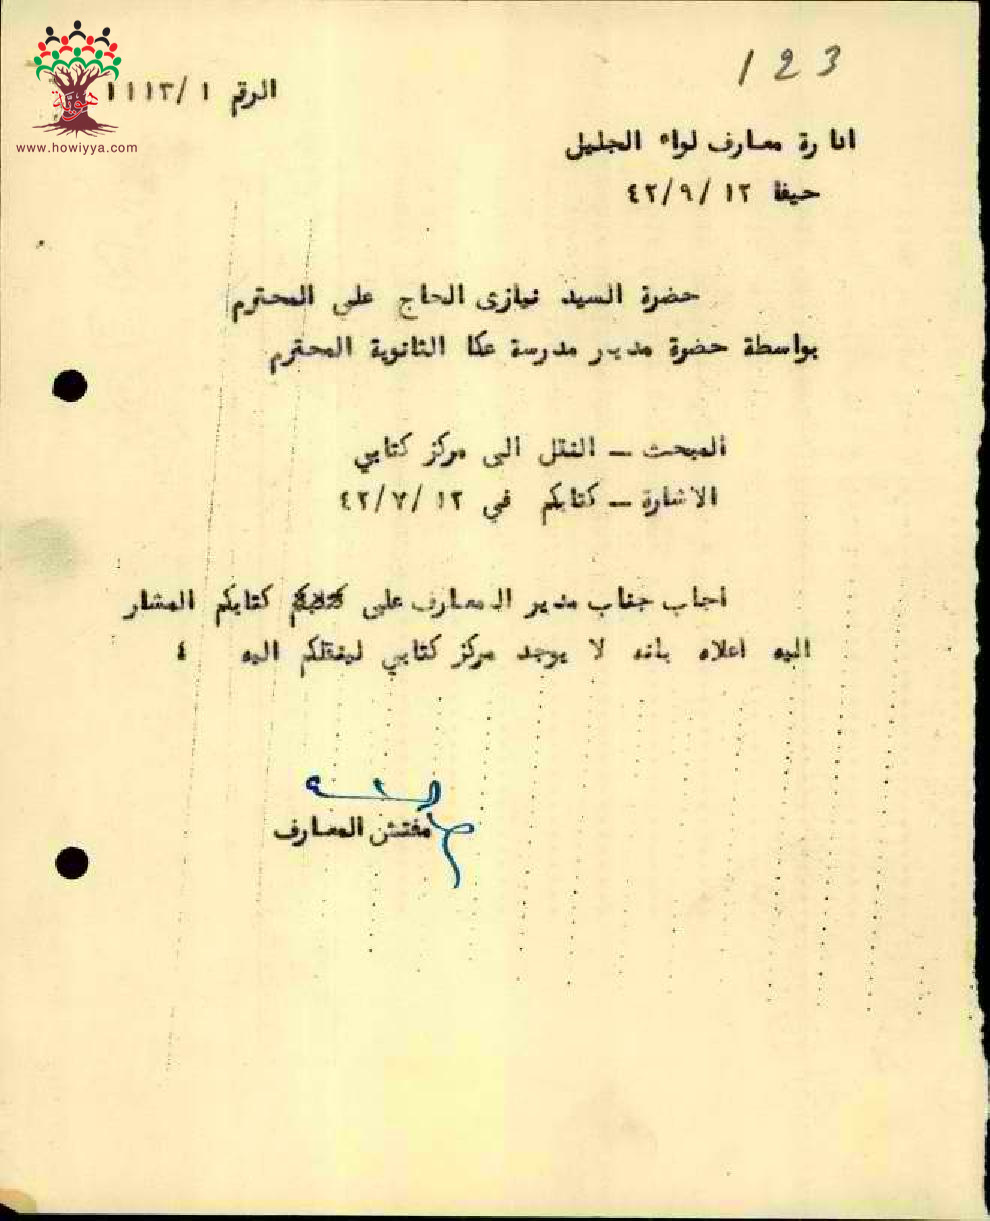 123
الرقم ١ /١١١٣
هوية
www.howiyya.com
ادارة معارف لواء الجليل
حيفا ١٢ /٩ /٤٢
حضرة السيد نيازى الحاج على المحترم
بواسطة حضرة مدير مدرسة عكا الثانوية المحترم
المبحث ــ النقل الى مركز كتابي
الاشارة ــ كتابكم في ١٢ /٧ /٤٢
اجاب جناب مدير المعارف على كتابكم المشار
اليه اعلاه بانه لا يوجد مركز كتابي لينقلكم اليه ٤
مفتش المعارف